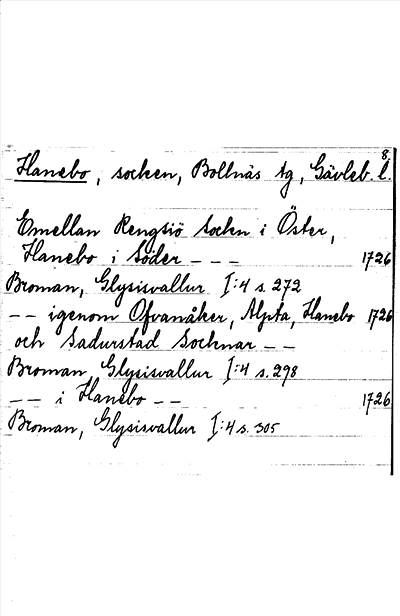 8.
Hanebo, socken, Bollnäs tg, Gävleb. l.
Emellan Rengsiö Socken i Öster,
Hanebo i Söder - - - 1726
Broman, Glysisvallur I:4 s. 272
- - igenom Ofvanåker, Alfta, Hanebo 1726
och Sadurstad Socknar - -
Broman, Glysisvallur I:4 s. 298
- - i Hanebo - - 1726
Broman, Glysisvallur I:4 s. 305